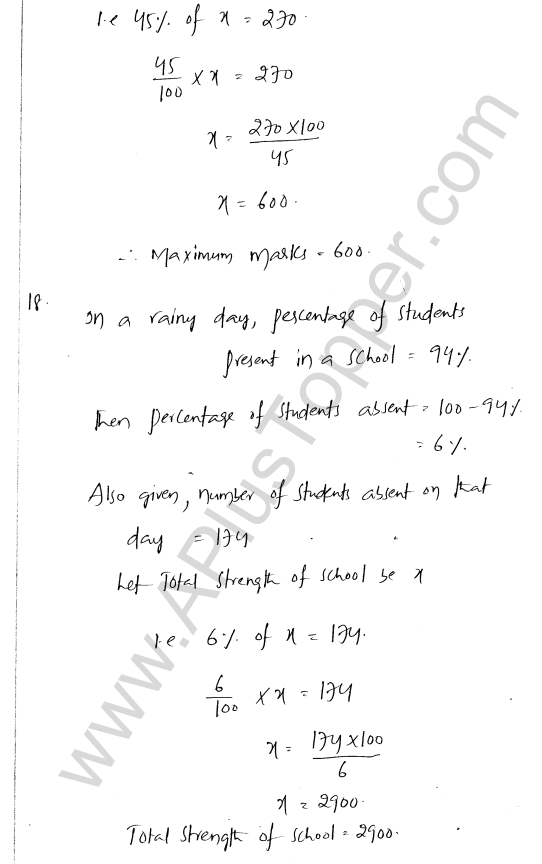 i.e 45% of x = 270.
45/100 × x = 270
x = 270×100/45
x = 600.
∴ Maximum marks = 600.
18.
In a rainy day, percentage of students
present in a school = 94%.
Then percentage of students absent = 100-94%
= 6%.
Also given, number of students absent on that
day = 174
Let Total strength of school be x
i.e 6% of x = 174.
6/100 × x = 174
x = 174×100/6
x = 2900.
Total strength of school = 2900.
www.APlusTopper.com